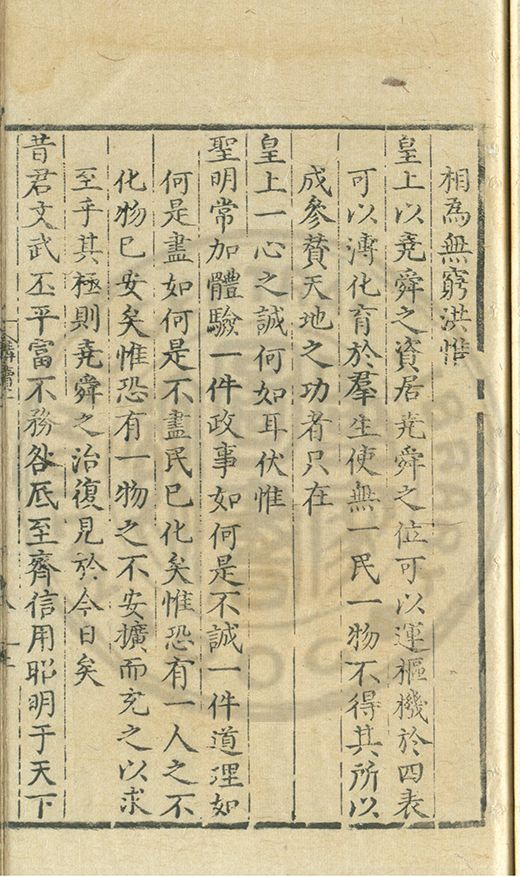 相為無窮洪惟
皇上以堯舜之資居堯舜之位可以運樞機於四表
可以溥化育於羣生使無一民一物不得其所以
成參贊天地之功者只在
皇上一心之誠何如耳伏惟
聖明常加體驗一件政事如何是不誠一件道理如
何是盡如何是不盡民已化矣惟恐有一人之不
化物已安矣惟恐有一物之不安擴而充之以求
至乎其極則堯舜之治復見於今日矣
昔君文武丕平富不務咎厎至齊信用昭明于天下